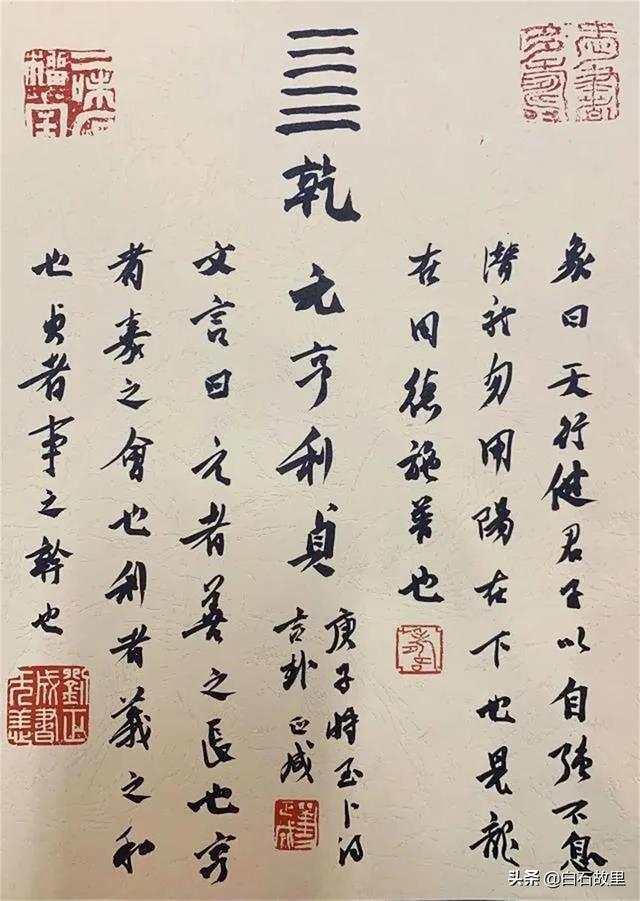 象曰天行健君子以自強不息
潛龍勿用陽在下也見龍
在田德施普也
乾元亨利貞
庚子將至卜得
吉卦正成
文言曰元者善之長也亨
者嘉之會也利者義之和
也貞者事之幹也
头条 @白石故里